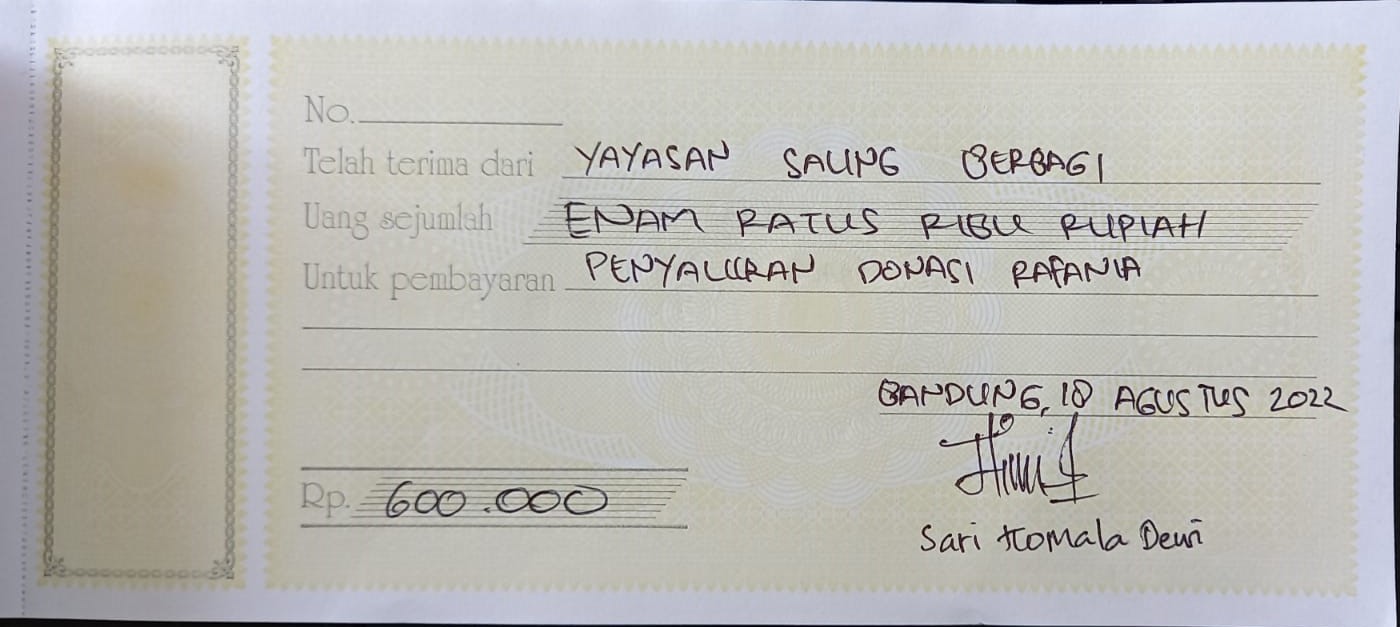 No.
Telah terima dari YAYASAN SALING BERBAGI
Uang sejumlah ENAM RATUS RIBU RUPIAH
Untuk pembayaran PENYALURAN DONASI RAFANIA
BANDUNG, 18 AGUSTUS 2022
Rp. 600.000
Sari Komala Dewi